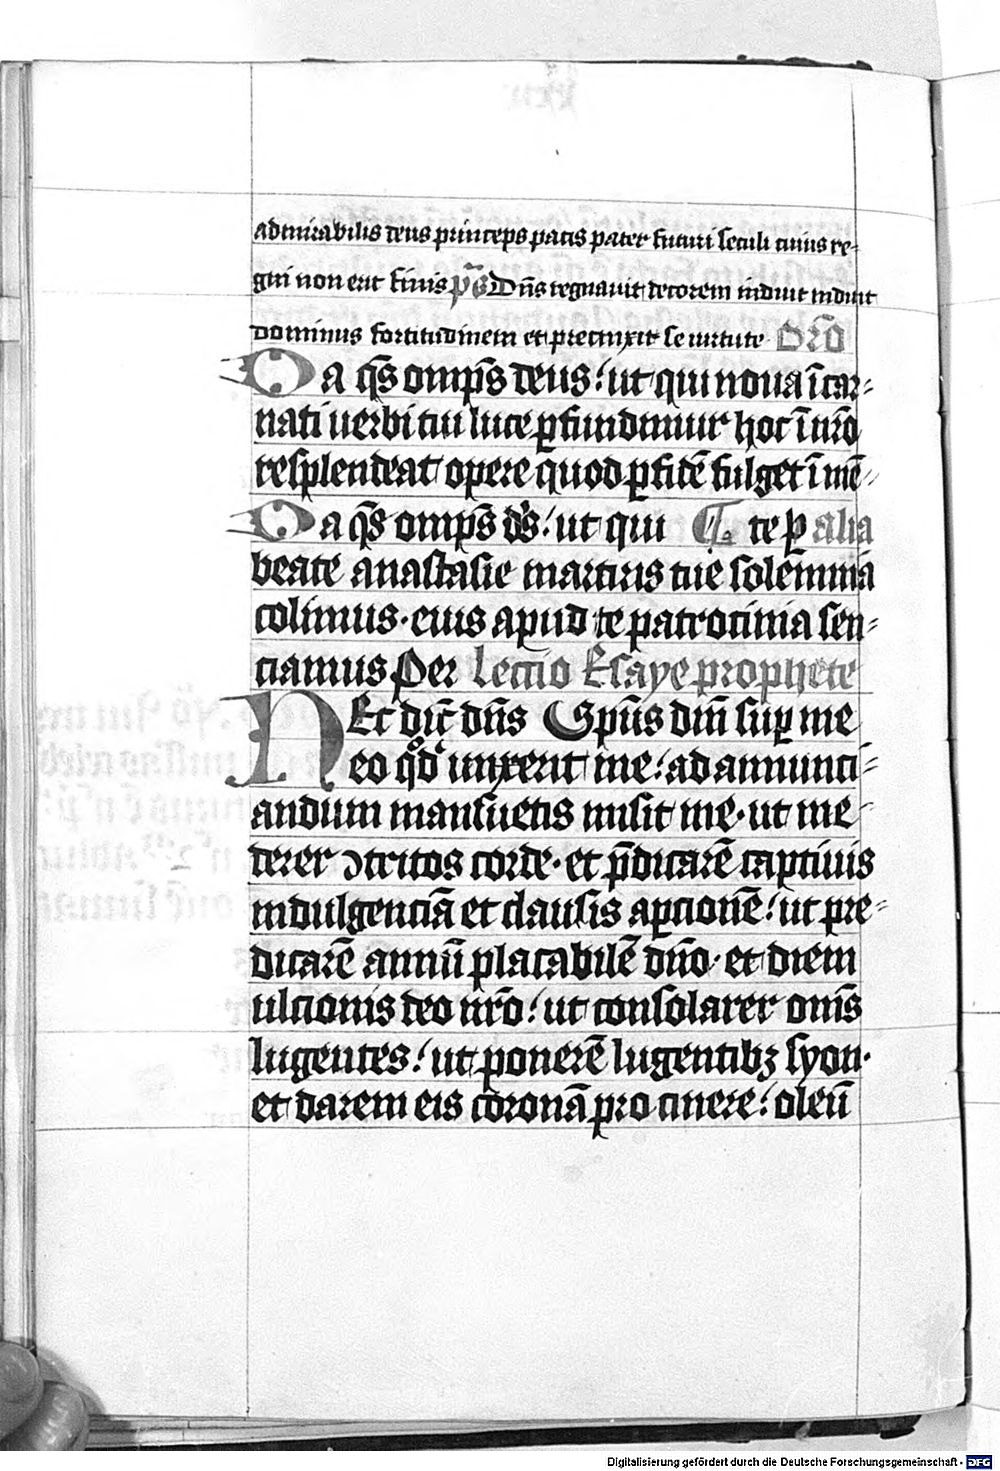 admirabilis deus princeps pacis pater futuri seculi cuius re-
gni non erit finis p̄s Dn̄s regnauit decorem induit induit
dominus fortitudinem et precinxit se uirtute Orō
Da qs̄ omp̄s deus: ut qui noua ī car-
nati uerbi tui luce ꝑfundimur hoc ī nr̄o
resplendeat opere quod ꝑ fidē fulget ī mē-
Da qs̄ omp̄s ds̄: ut qui te ꝑ alia
beate anastasie martiris tue solemnia
colimus· eius apud te patrocinia sen-
ciamus Per Lectio Esaye prophete
Hec dic̄t dn̄s Spūs dn̄i suꝑ me
eo qd̄ unxerit me: ad annunci-
andum mansuetis misit me· ut me-
derer ↄtritos corde· et p̄dicarē captiuis
indulgenciā et clausis aꝑcionē: ut pre-
dicarē annū placabilē dn̄o· et diem
ulcionis deo nr̄o: ut consolarer om̄s
lugentes: ut ponerē lugentibꝫ syon·
et darem eis coronā pro cinere: oleū
Digitalisierung gefördert durch die Deutsche Forschungsgemeinschaft - DFG